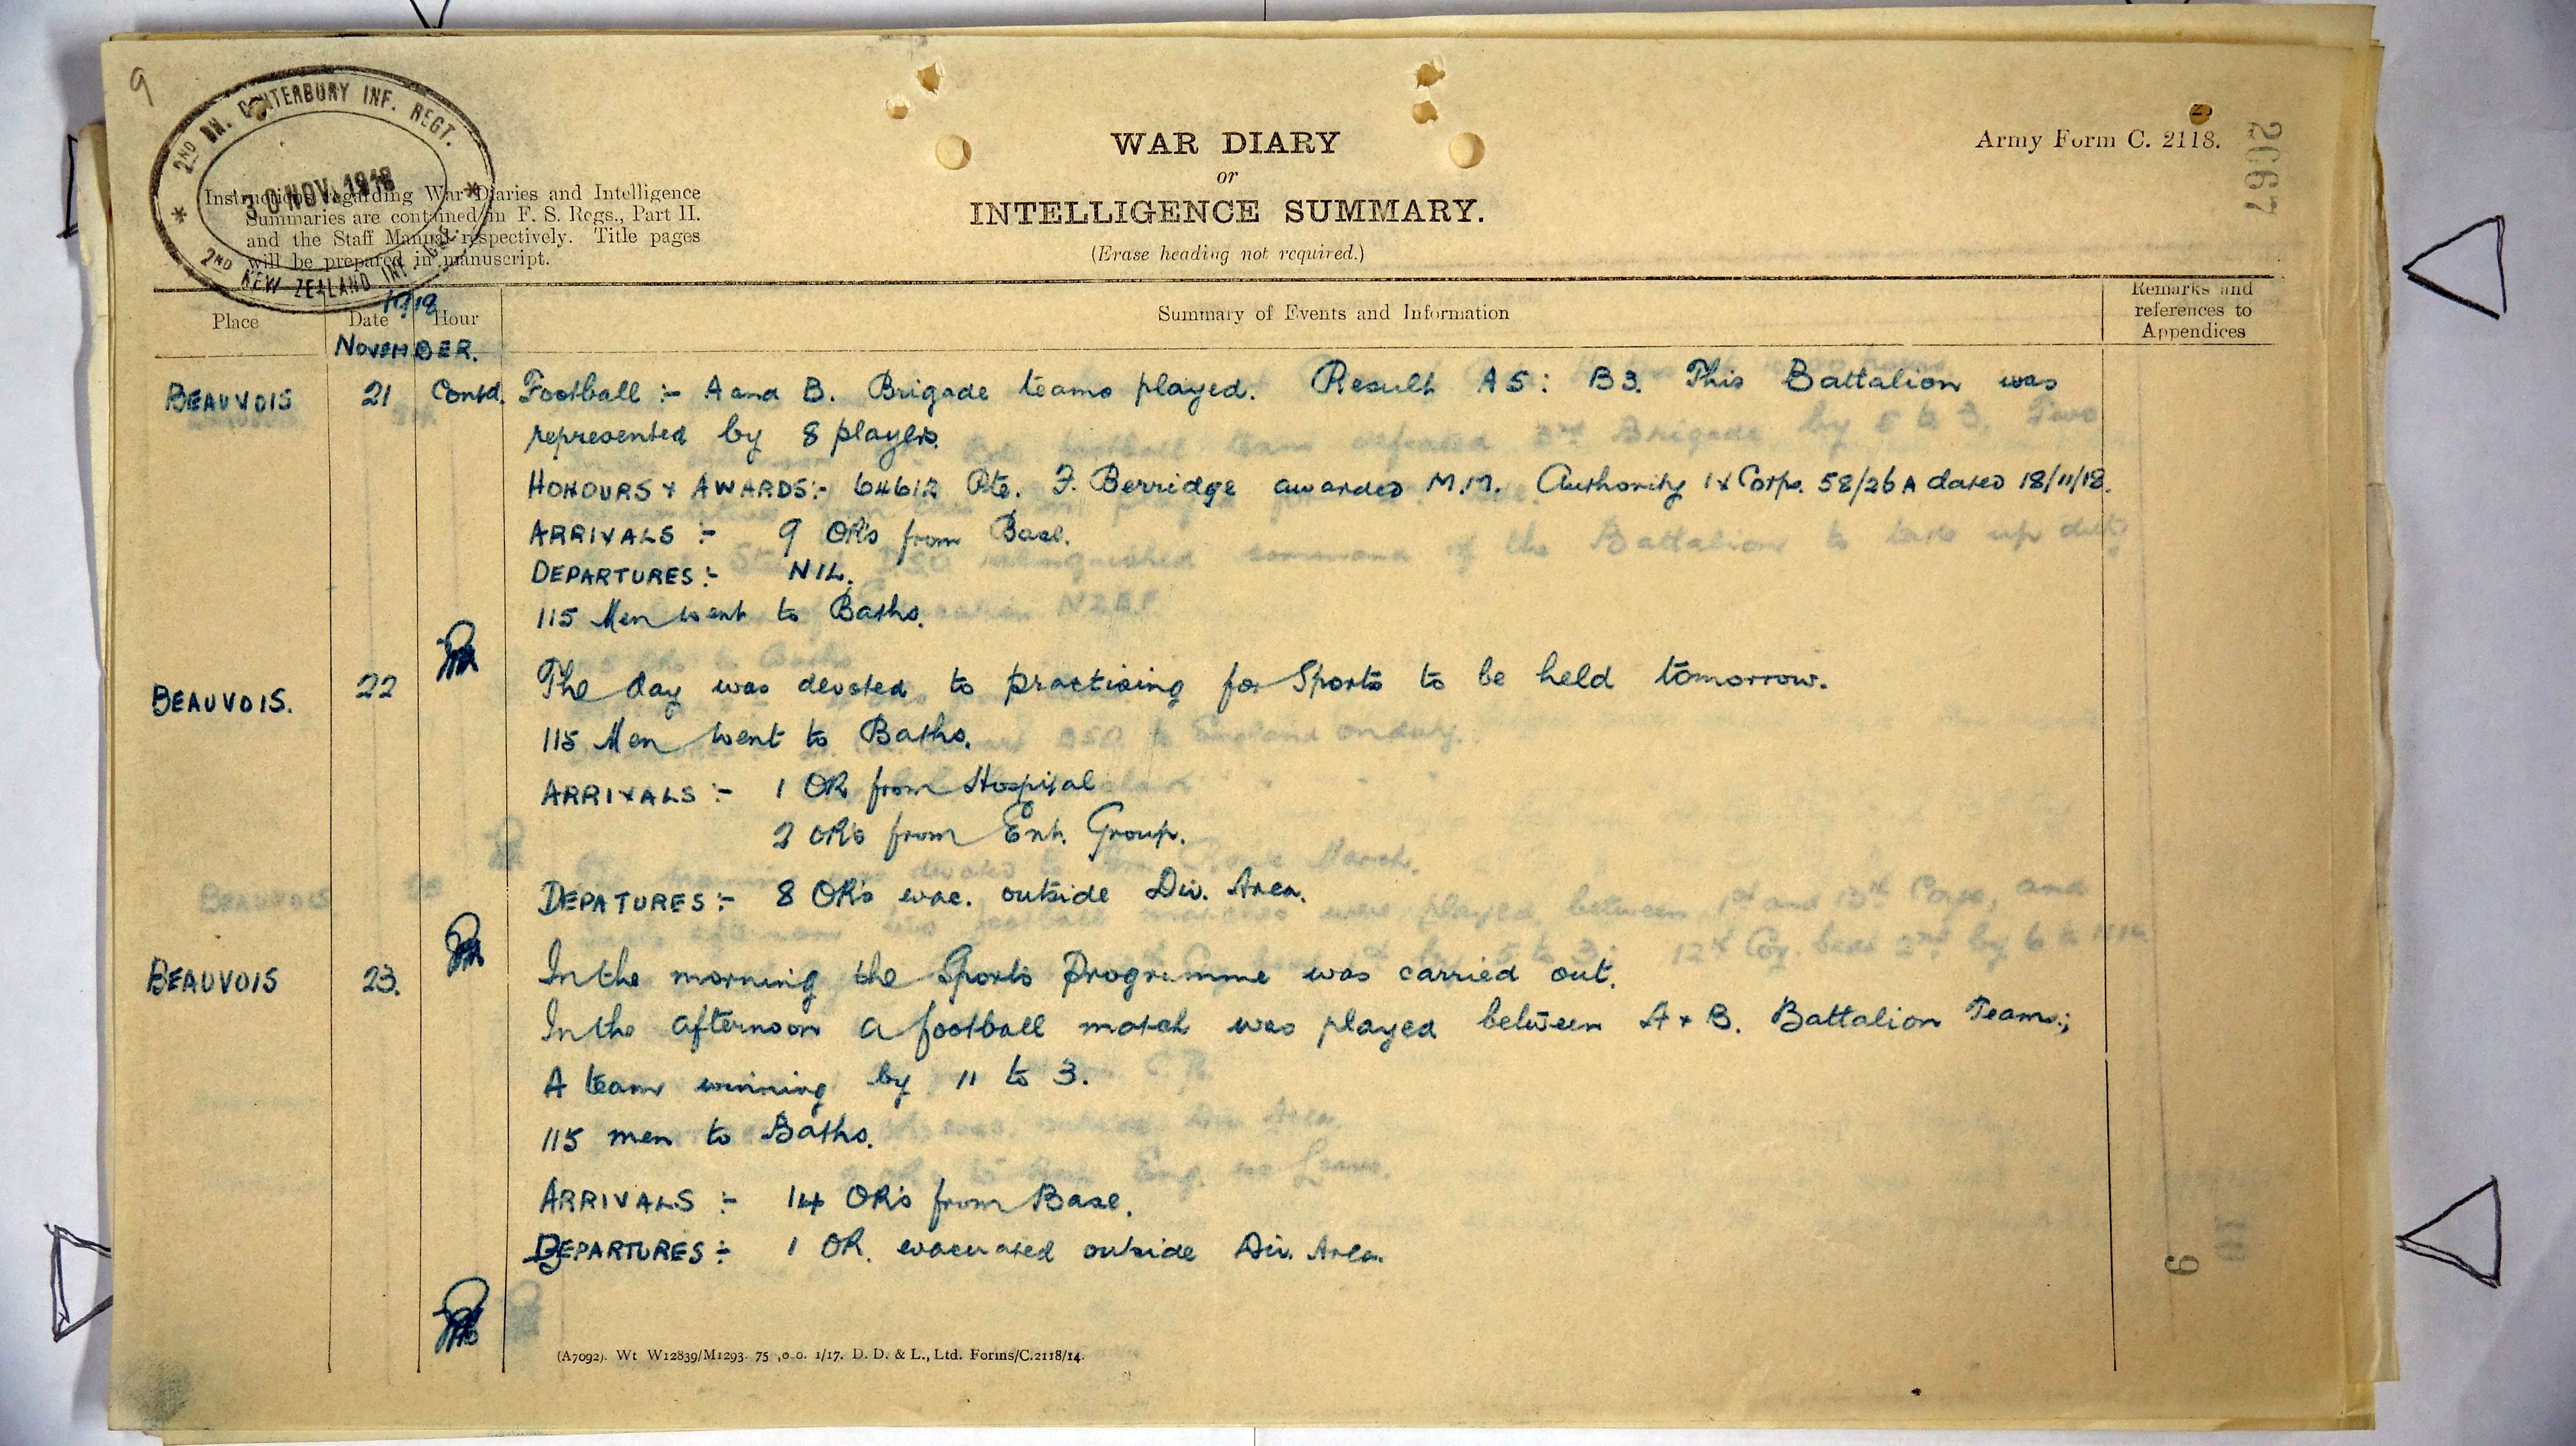 9
2ND BN. CANTERBURY INF. REGT.
30 NOV. 1918
2ND NEW ZEALAND INF.
Instructions regarding War Diaries and Intelligence
Summaries are contained in F. S. Regs., Part II.
and the Staff Manual respectively. Title pages
will be prepared in manuscript.
WAR DIARY
or
INTELLIGENCE SUMMARY.
(Erase heading not required.)
Army Form C. 2118.
2067
1918
Place Date Hour Summary of Events and Information Remarks and
references to
Appendices
NOVEMBER.
BEAUVOIS 21 Contd. Football :- A and B. Brigade teams played. Result A 5 : B 3. This Battalion was
represented by 8 players.
HONOURS & AWARDS:- 64612 Pte. F. Berridge awarded M.M. Authority Corps. 58/26A dated 18/11/18.
ARRIVALS :- 9 OR's from Base.
DEPARTURES :- NIL.
115 Men went to Baths.
BEAUVOIS. 22 The day was devoted to practising for Sports to be held tomorrow.
115 Men went to Baths.
ARRIVALS :- 1 OR from Hospital
2 OR's from Ent. Group.
DEPATURES :- 8 OR's evac. outside Div. Area.
BEAUVOIS 23. In the morning the Sports Programme was carried out.
In the afternoon a football match was played between A & B. Battalion Teams;
A team winning by 11 to 3.
115 men to Baths.
ARRIVALS :- 14 OR's from Base.
DEPARTURES :- 1 OR. evacuated outside Div. Area.
9
(A7092). Wt W12839/M1293. 75 ,0.0. 1/17. D. D. & L., Ltd. Forms/C.2118/14.